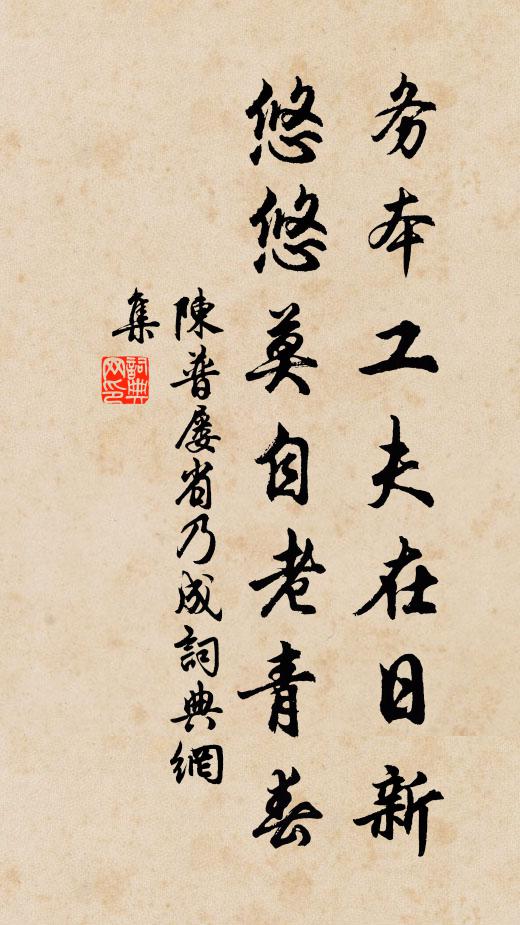 务本工夫在日新
悠悠莫自老青春
陳普屡省乃成詞典網
集
詞典
网印